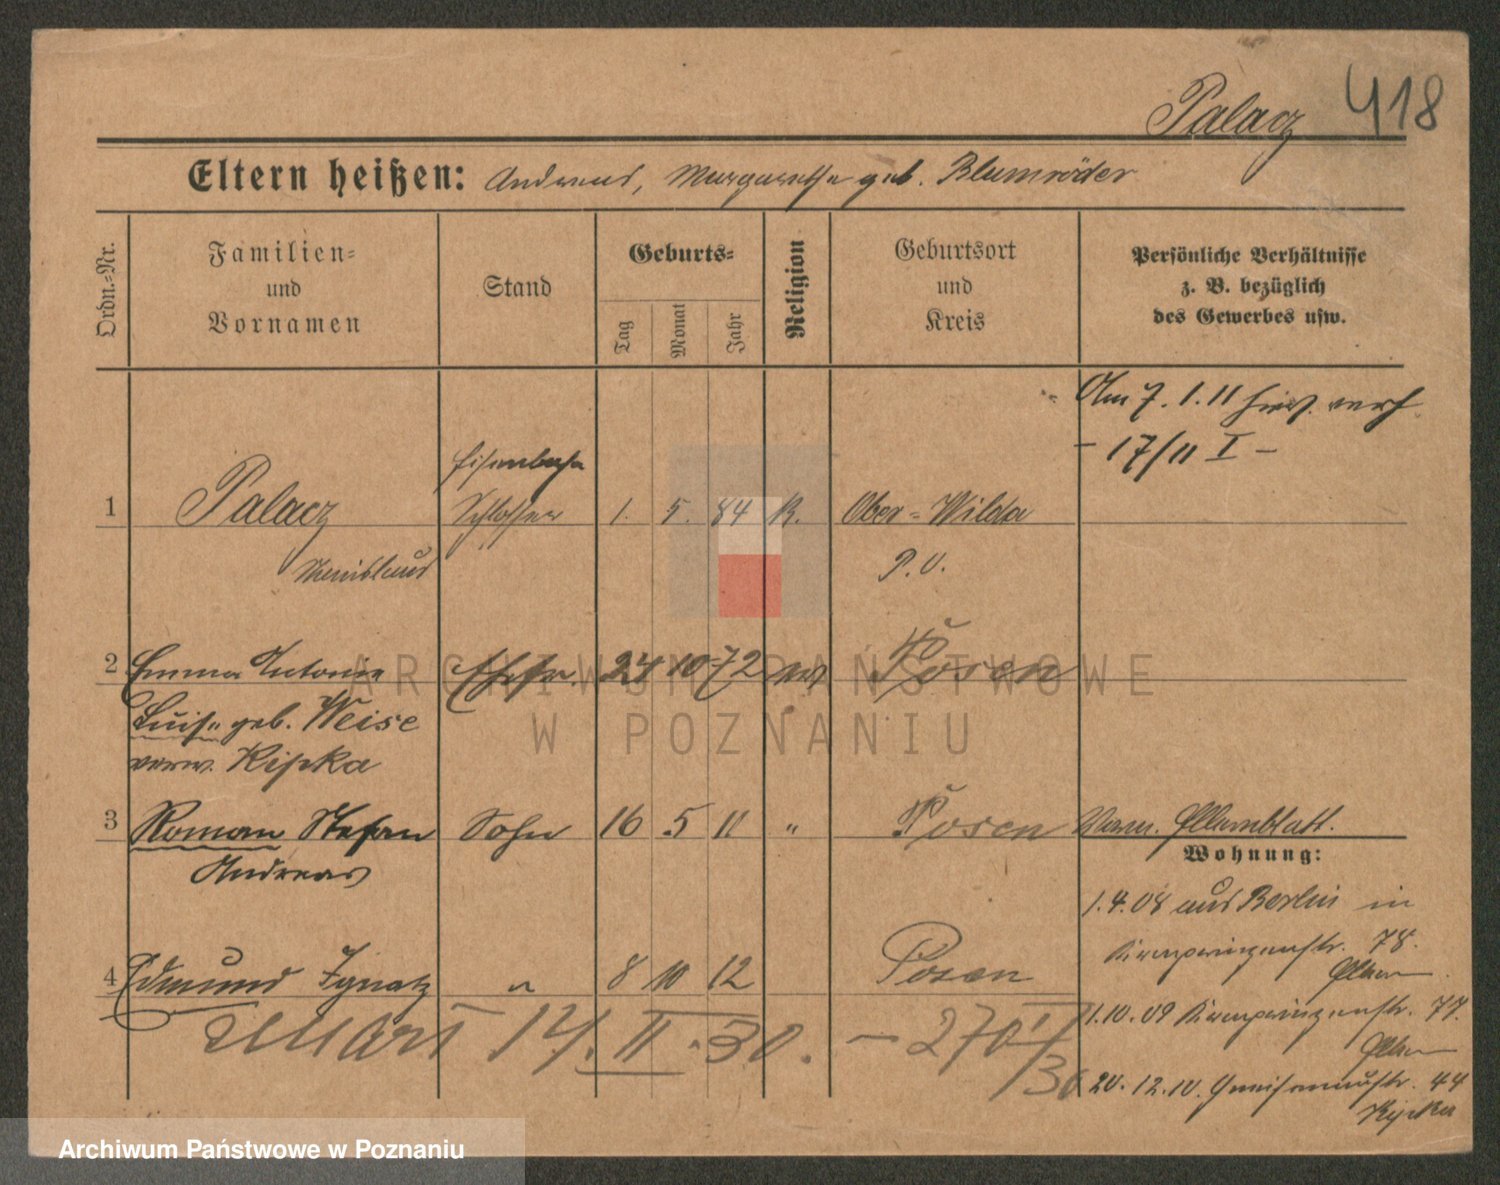 Palacz 418
Eltern heißen: Andreas, Margarethe geb. Blumröder
Ordn.-Nr.
Familien-
und
Vornamen
Stand
Geburts-
Tag
Monat
Jahr
Religion
Geburtsort
und
Kreis
Persönliche Verhältnisse
z. B. bezüglich
des Gewerbes usw.
Am 7. 1. 11 hier verh
- 17/11 I -
Eisenbahn
1 Palacz Schlosser 1. 5. 84 K. Ober-Wilda
Stanislaus P. O.
2 Emma Antonie Ehefr. 24 10 72 ev Posen
Luise geb. Weise
verw. Ripka
3 Roman Stefan Sohn 16 5 11 " Posen
Andreas
Wohnung:
1.4.08 aus Berlin in
Kronprinzenstr. 78.
4 Edmund Ignatz " 8 10 12 Posen
1.10.09 Kronprinzenstr. 77.
zmarł 14. II. 30. - 270/I
/30
20.12.10. Gneisenaustr. 44
Ripka
ARCHIWUM PAŃSTWOWE
W POZNANIU
Archiwum Państwowe w Poznaniu